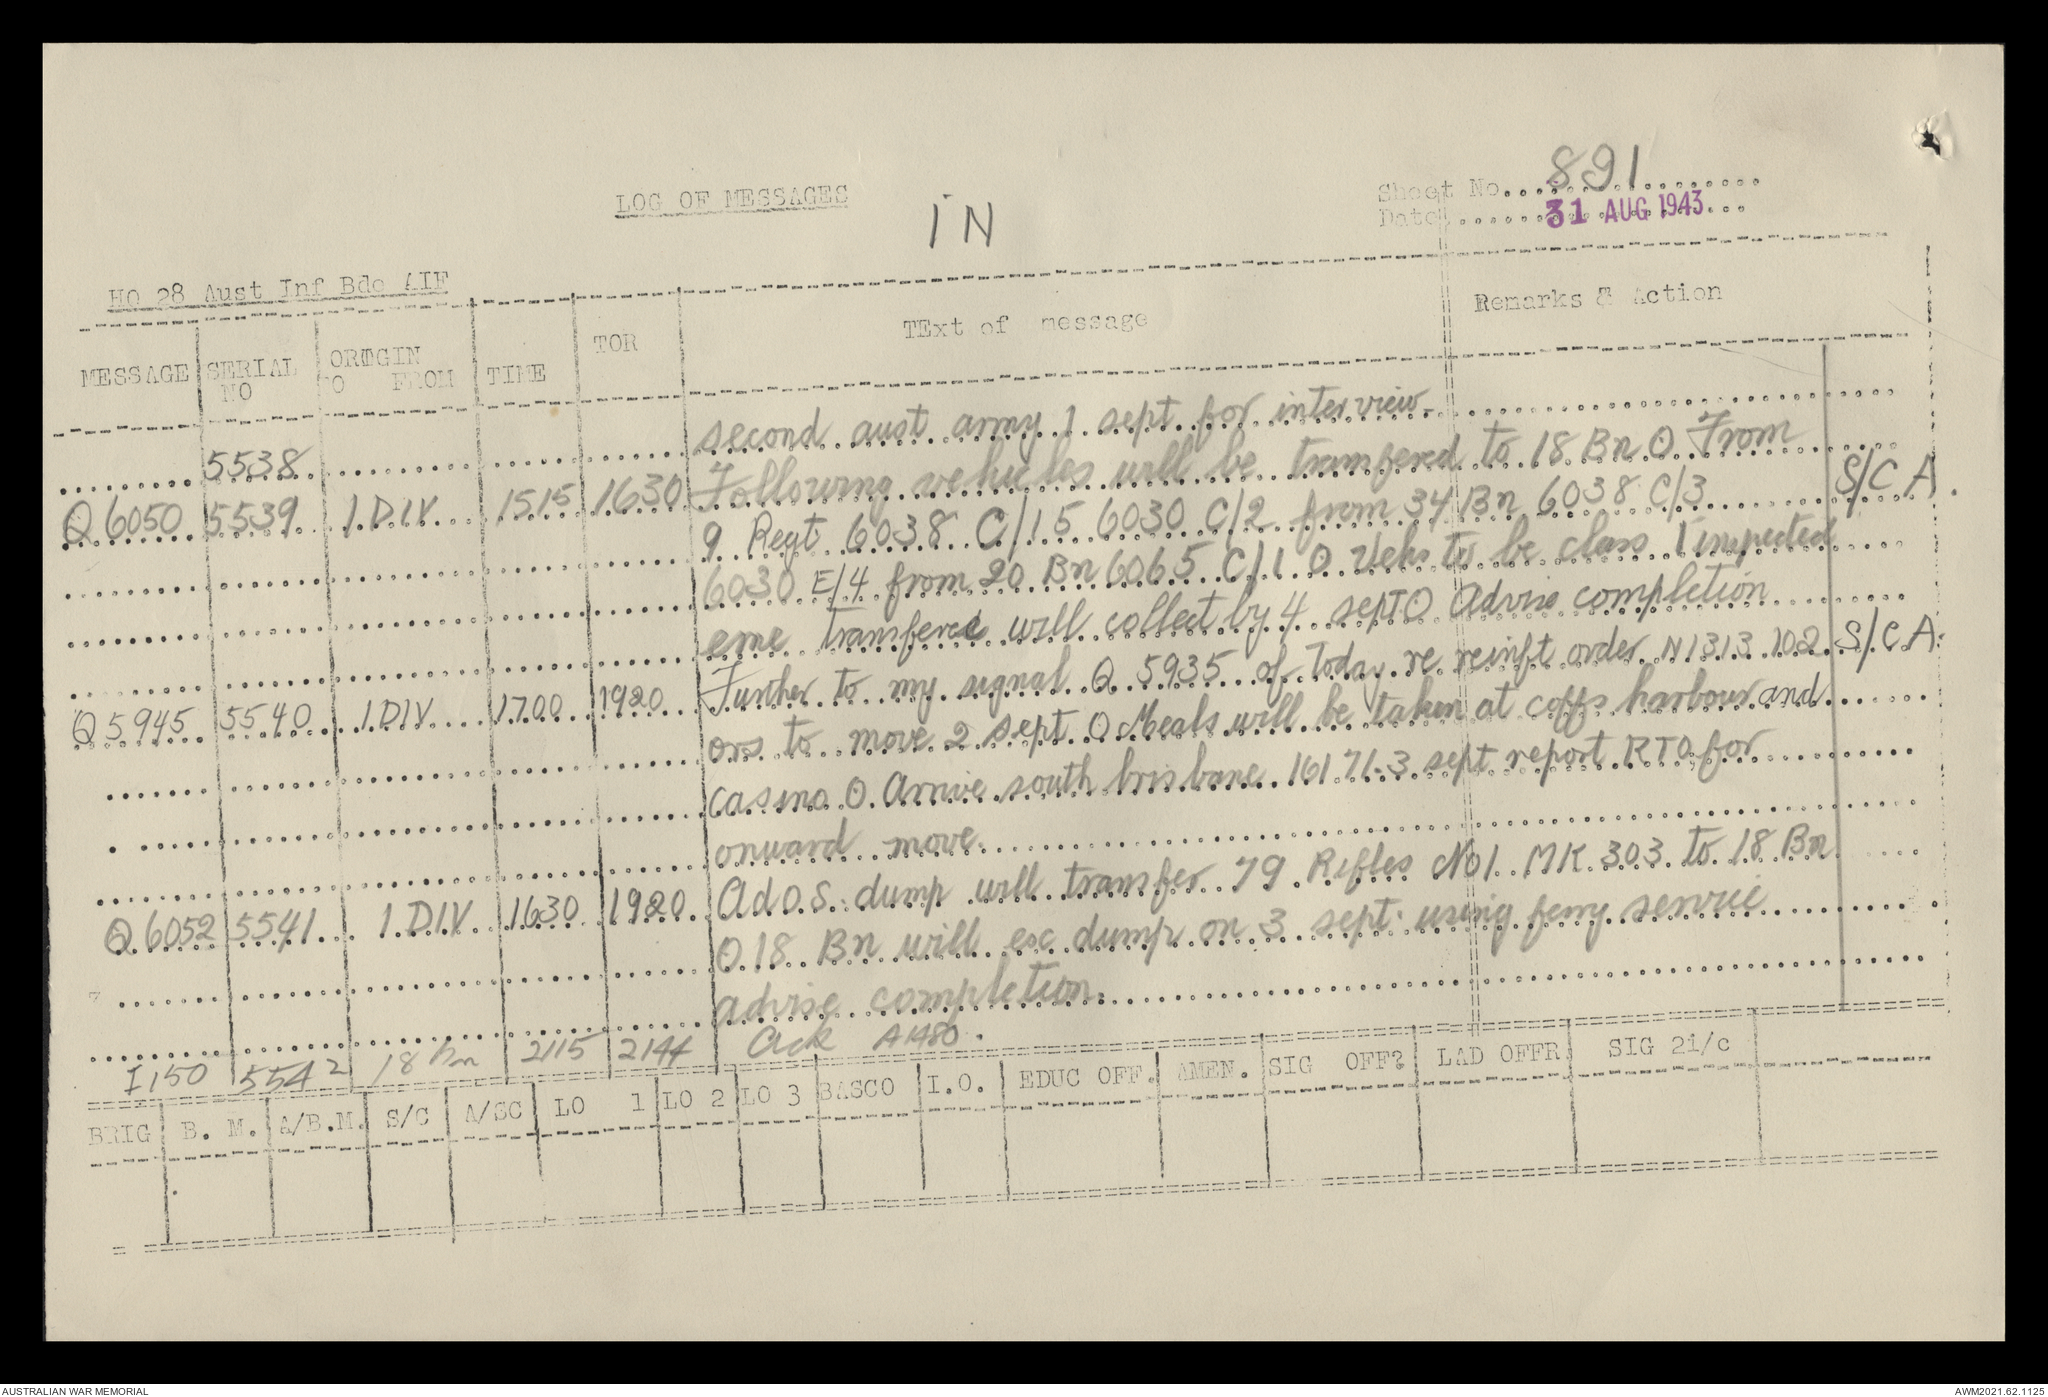 LOG OF MESSAGES
IN
Sheet No. 891
Date 31 AUG 1943
HQ 28 Aust Inf Bde AIF
MESSAGE SERIAL NO ORIGIN TO FROM TIME TOR TExt of message Remarks & Action
5538 second aust army 1 sept for interview.
Q6050 5539 1 DIV 1515 1630 Following vehicles will be transfered to 18 Bn O From S/C A
9 Regt 6038 C/15 6030 C/2 from 34 Bn 6038 C/3
6030 E/4 from 20 Bn 6065 C/1 O Vehs to be class 1 inspected
eme transfered will collect by 4 sept O Advise completion
Q5945 5540 1 DIV 1700 1920 Further to my signal Q 5935 of today re reinft order N1313 102 S/C A
ors to move 2 sept O Meals will be taken at coffs harbour and
casino O Arrive south brisbane 161 71-3 sept report RTO for
onward move.
Q6052 5541 1 DIV 1630 1920 AdOS dump will transfer 79 Rifles No1 MK 303 to 18 Bn
O 18 Bn will esc dump on 3 sept using ferry service
advise completion.
I150 5542 18 bn 2115 2144 Ack A1480.
BRIG B. M. A/B.M. S/C A/SC LO 1 LO 2 LO 3 BASCO I.O. EDUC OFF. AMEN. SIG OFF? LAD OFFR SIG 2i/c
AUSTRALIAN WAR MEMORIAL
AWM2021.62.1125